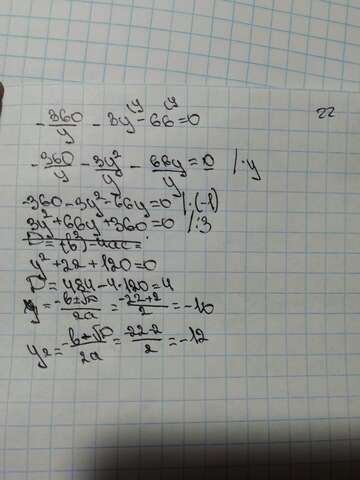 22
-360/y - 3y - 66 = 0
-360/y - 3y²/y - 66y/y = 0 /·y
-360 - 3y² - 66y = 0 /:(-1)
3y² + 66y + 360 = 0 /:3
D = (b²) - 4ac =
y² + 22 + 120 = 0
D = 484 - 4·120 = 4
y = -b±√D/2a = -22+2/2 = -10
y₂ = -b±√D/2a = -22-2/2 = -12